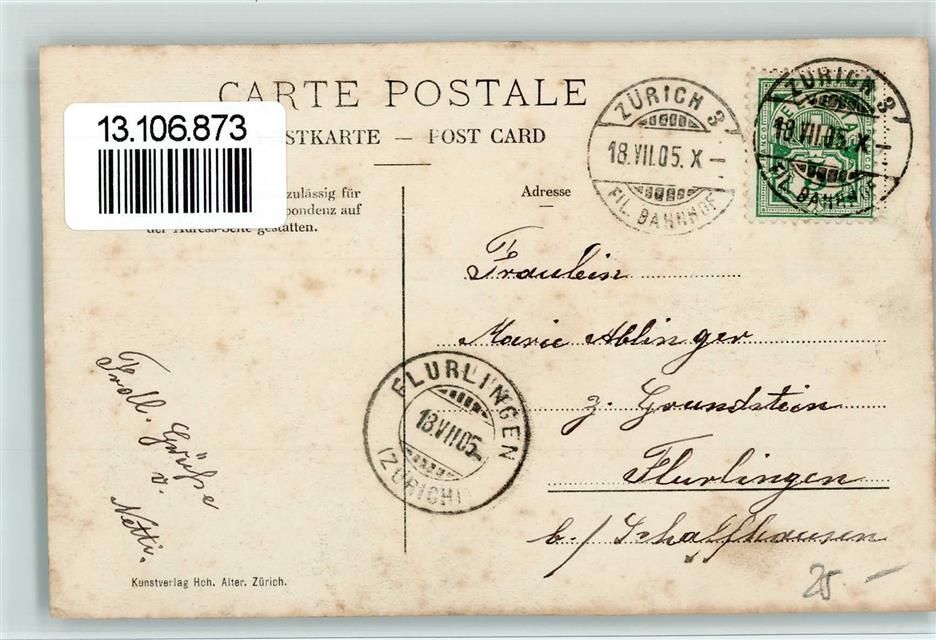 CARTE POSTALE
13.106.873
STKARTE — POST CARD
zulässig für
pondenz auf
der Adress-Seite gestatten.
Adresse
ZÜRICH 3
18.VII.05. X –
FIL. BAHNHOF
ZÜRICH 3
18.VII.05. X –
FIL. BAHNHOF
Fräulein
Marie Ablinger
z. Grundstein
Flurlingen
b./ Schaffhausen
FLURLINGEN
18.VII.05
(ZÜRICH)
Frdl. Grüsse
v. Netti.
Kunstverlag Hch. Alter. Zürich.
25.–